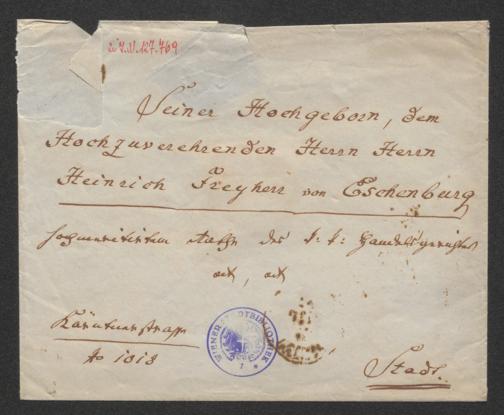 zu I.N. 127.769
Seiner Hochgeborn, dem
Hochzuverehrenden Herrn Herrn
Heinrich Freyherr von Eschenburg
des k: k: Handelsgerichtes
Kärntnerstrasse
No 1018
WIENER STADTBIBLIOTHEK
Stadt.